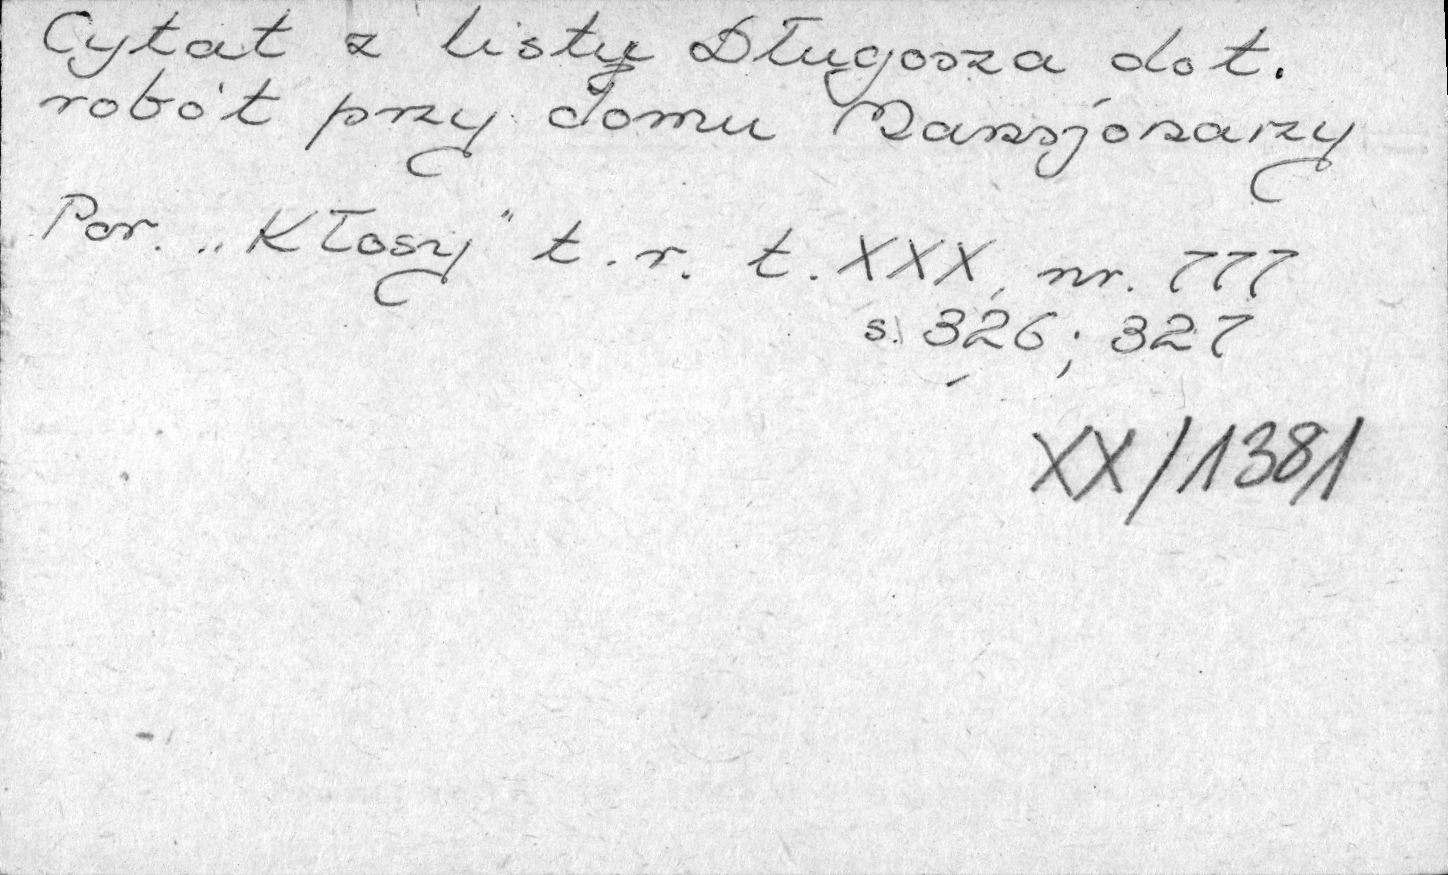 Cytat z listy Długosza dot.
robót przy domu Mansjonarzy
Por. „Kłosy" t. r. t. XXX, nr. 777
s. 326; 327
XX/1381